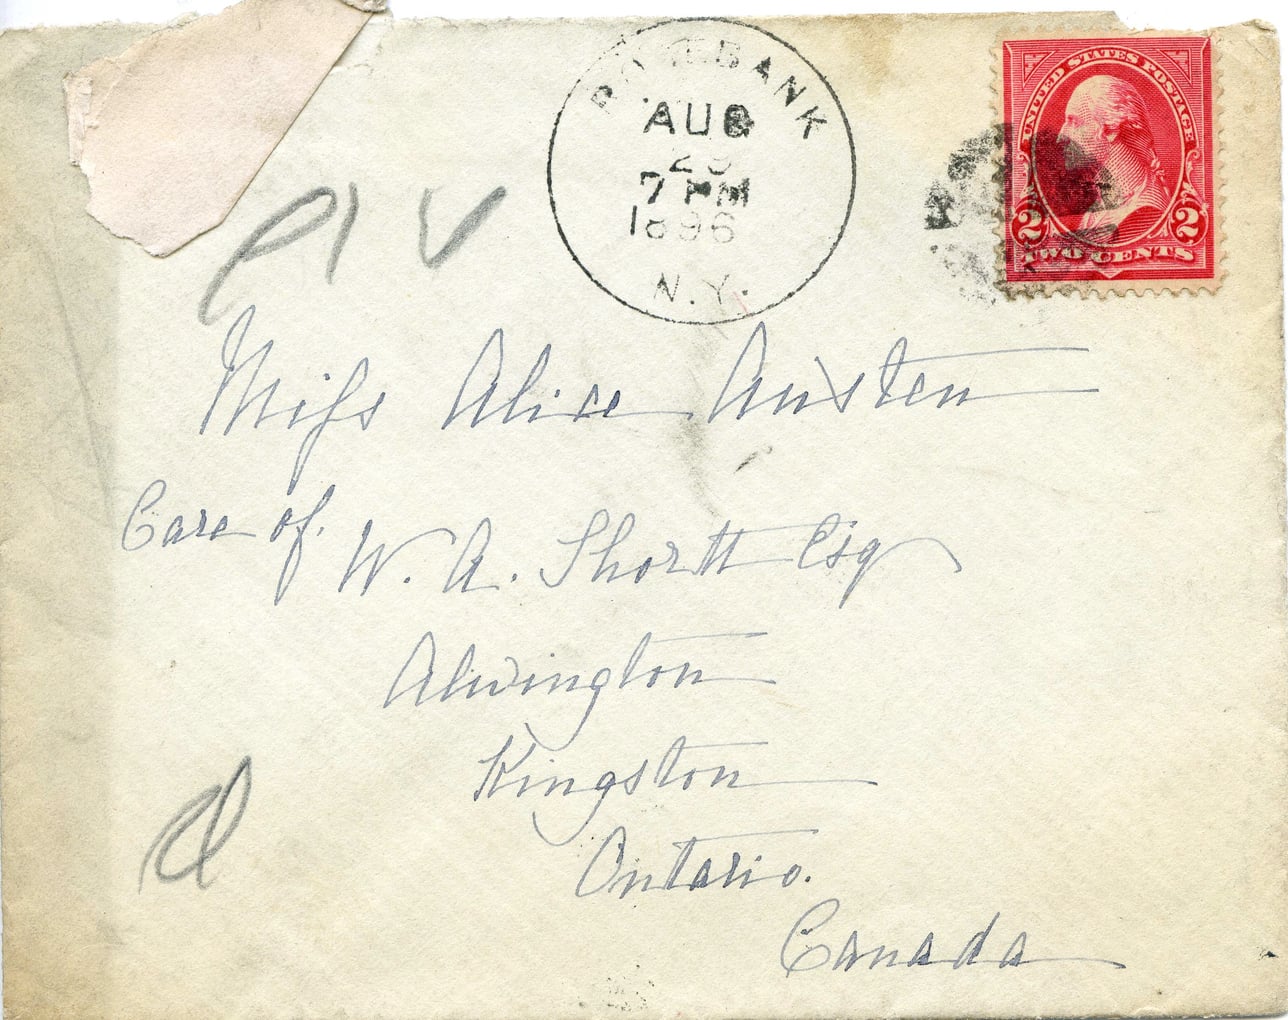 ROSEBANK
AUG
29
7 PM
1896
N.Y.
UNITED STATES POSTAGE
2 2
TWO CENTS
Miss Alice Austen
Care of. W. A. Shortt Esq
Alwington
Kingston
Ontario.
Canada